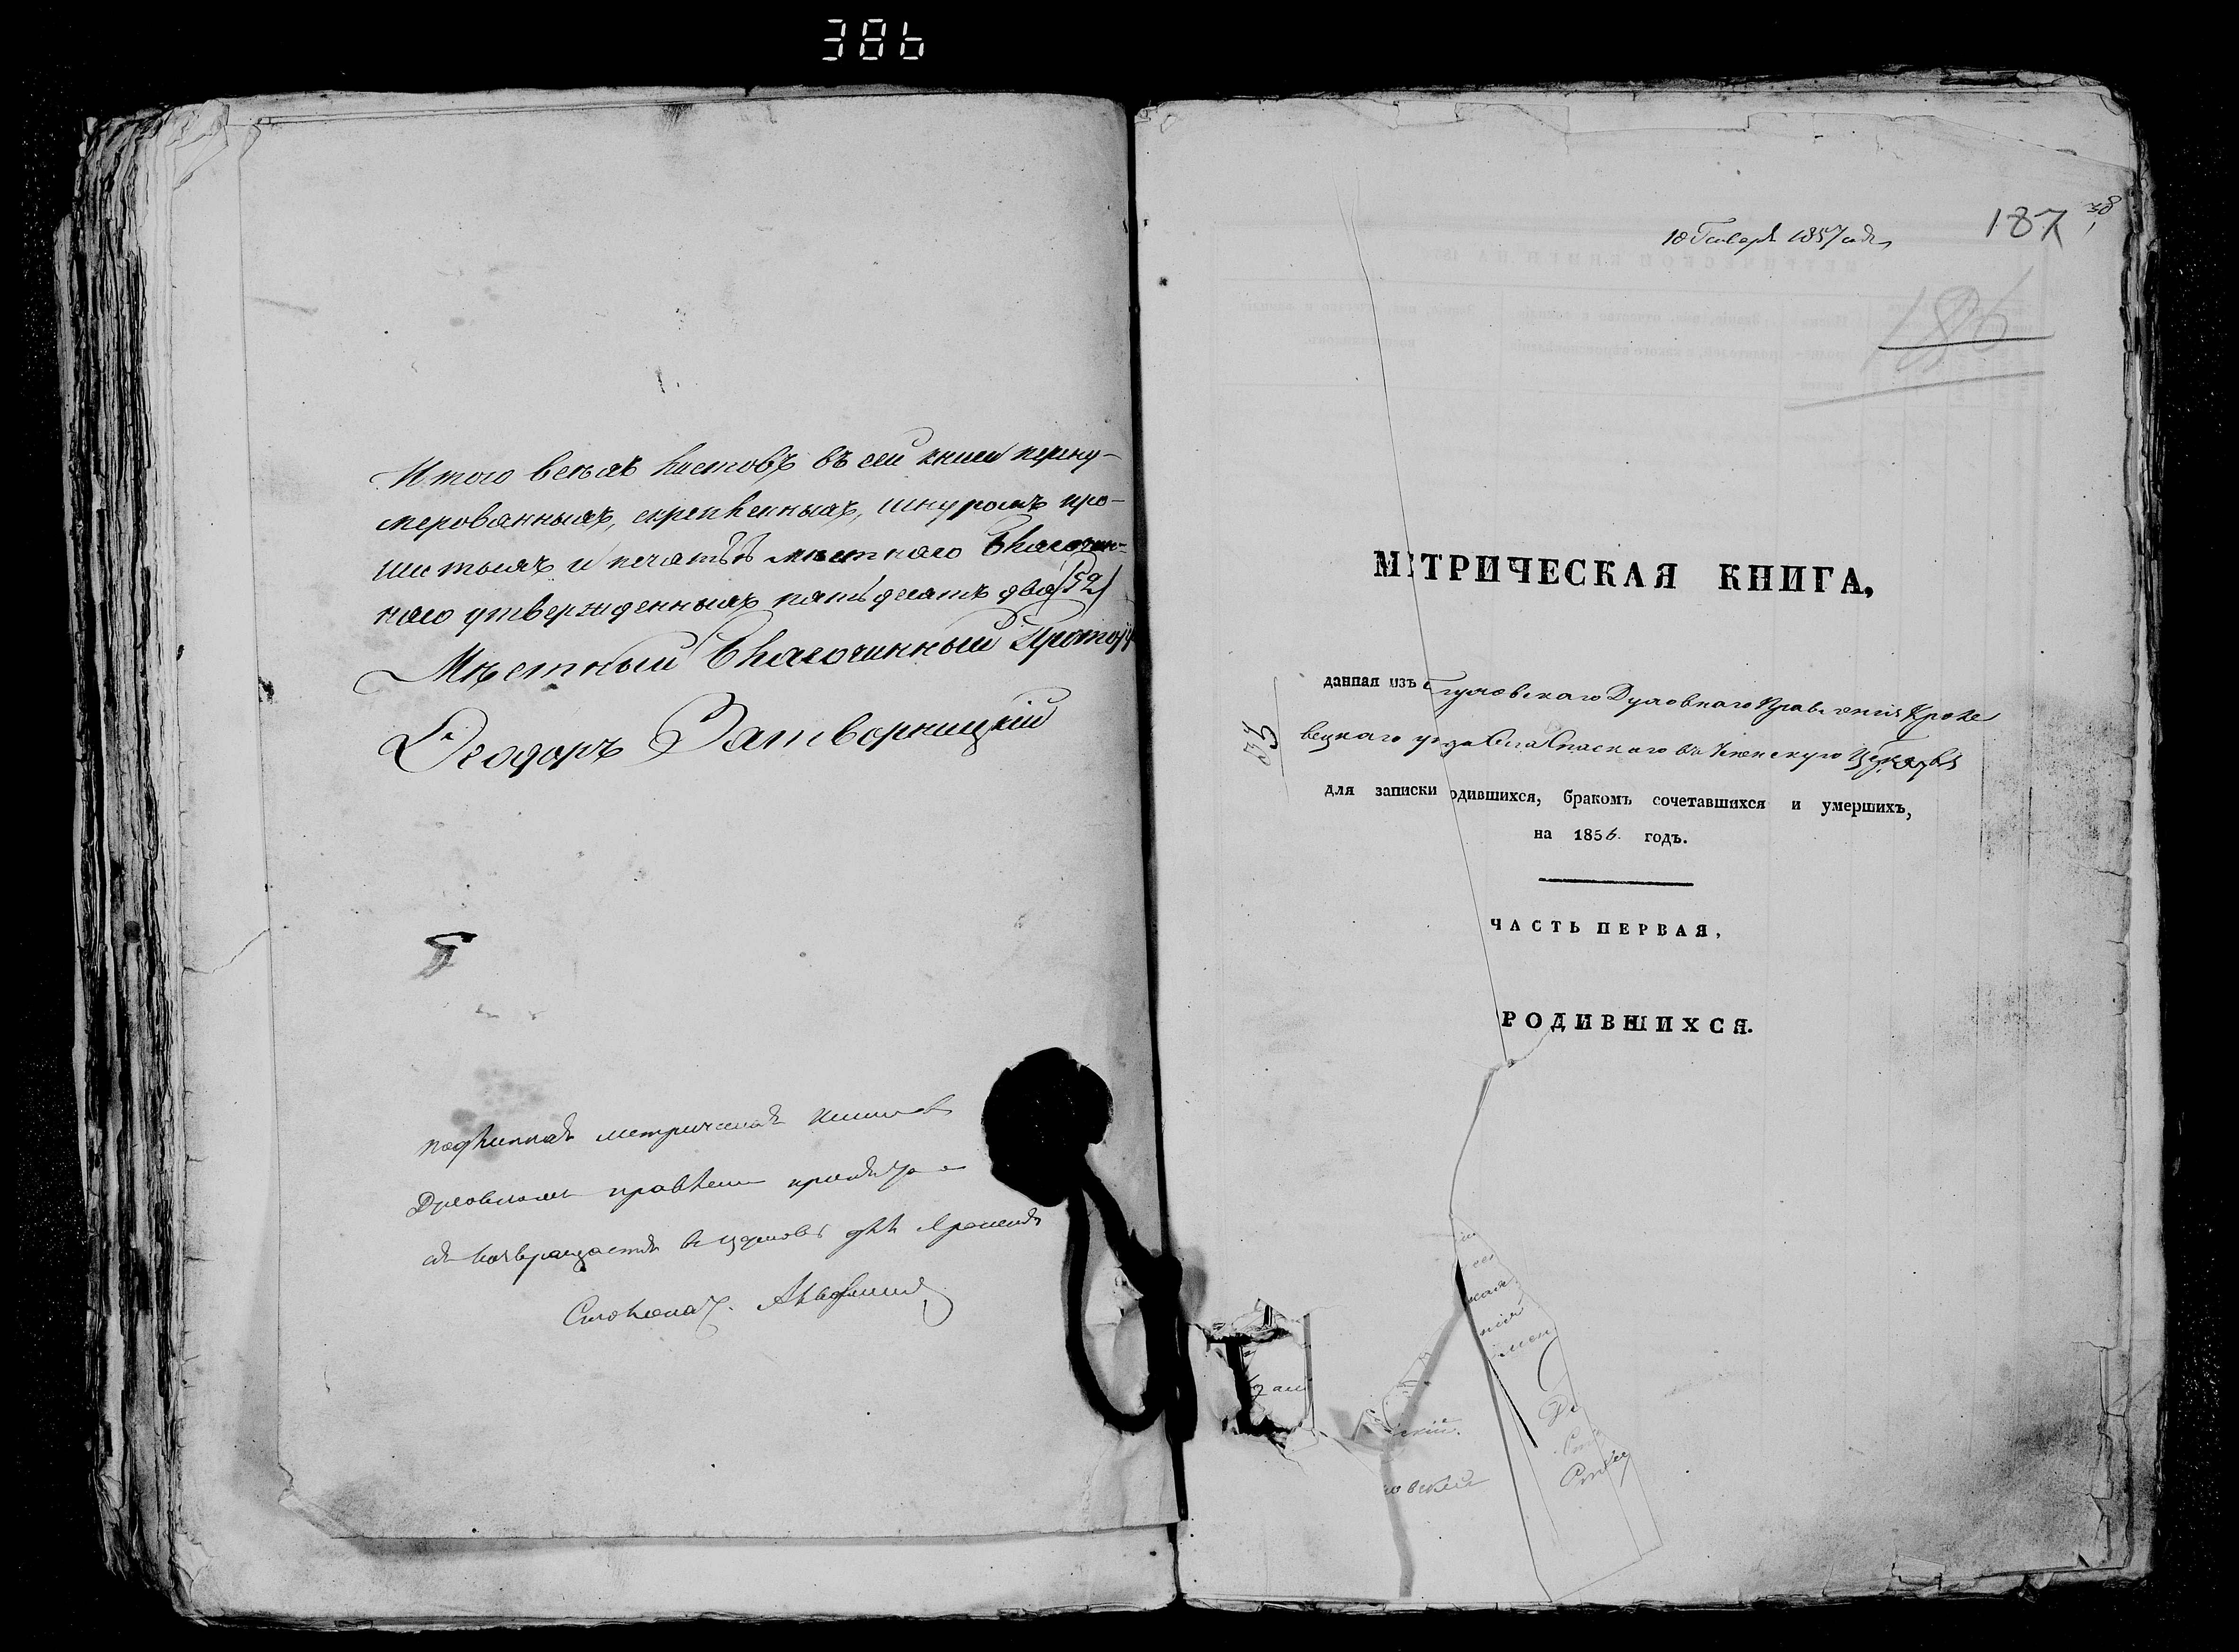 386
Итого всѣхъ листовъ въ сей книгѣ перену-
мерованныхъ, скрѣпленныхъ, шнуромъ про-
шитыхъ и печатью мѣстнаго Благочин-
наго утвержденныхъ пятьдесятъ два (52)
Мѣстный Благочинный Протоіер
Ѳеодоръ Затворницкій
подлинная метрическая книга въ
Духовномъ правлении
возвращается въ церковь для храненія
18 Генваря 1857 года
187
186
МЕТРИЧЕСКАЯ КНИГА,
данная изъ Глуховскаго Духовнаго Правленія Кроле
вецкаго уезда Села Спаскаго въ Успенскую Церковь
для записки родившихся, бракомъ сочетавшихся и умершихъ,
на 1856 годъ.
ЧАСТЬ ПЕРВАЯ,
РОДИВШИХСЯ.